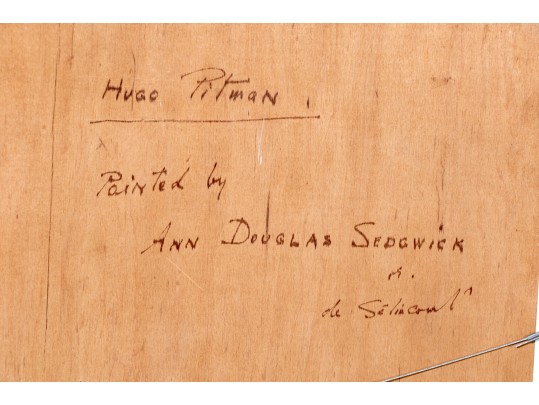 Hugo Pitman.
Painted by
ANN DOUGLAS SEDGWICK
de Sélincourt